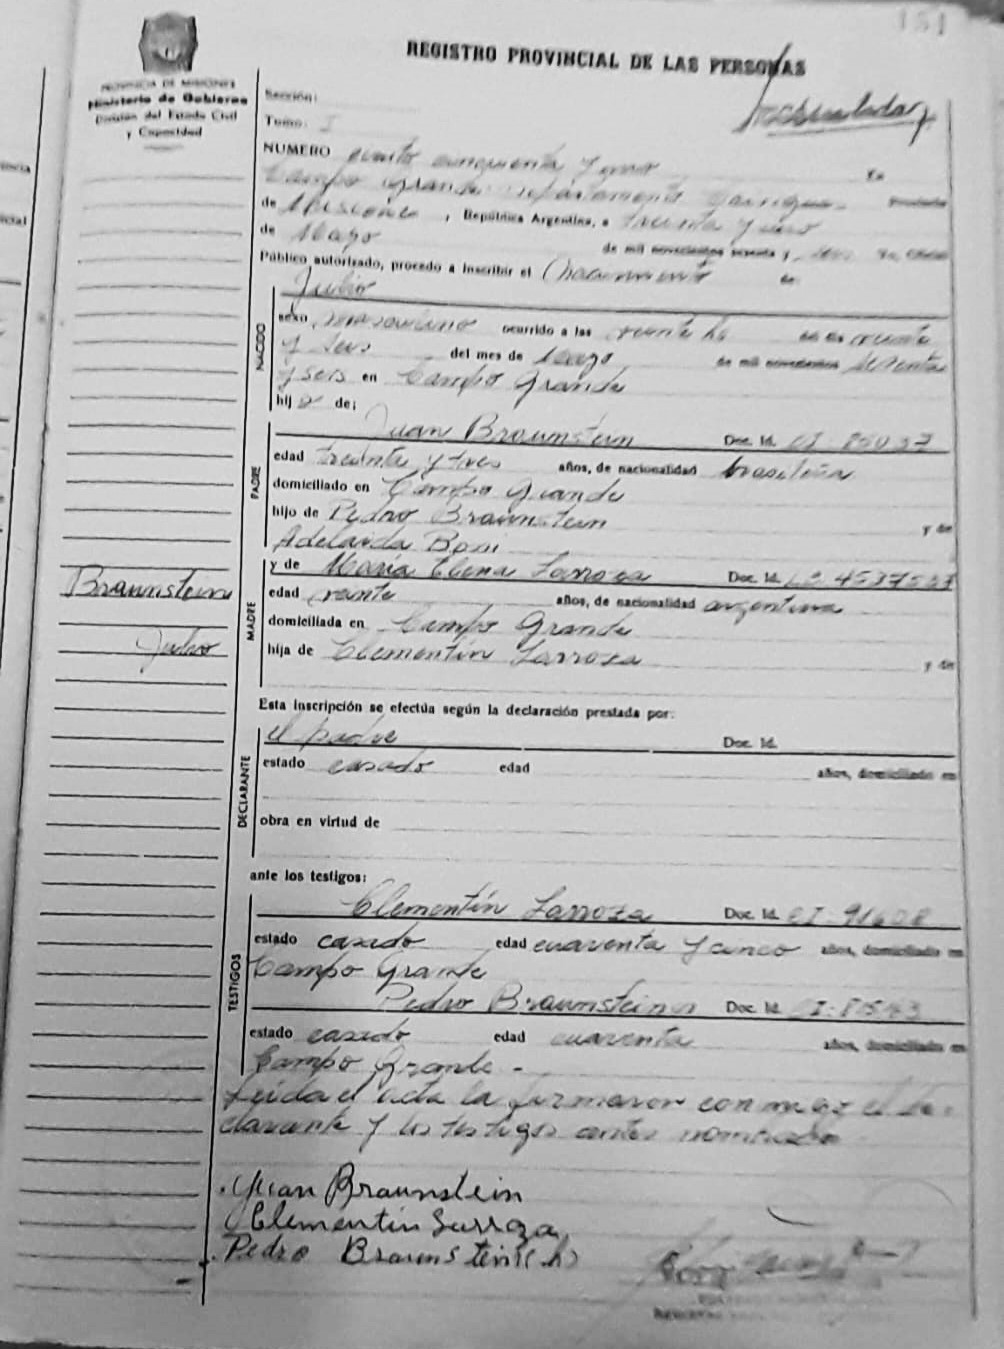 151
REGISTRO PROVINCIAL DE LAS PERSONAS
PROVINCIA DE MISIONES
Ministerio de Gobierno
División del Estado Civil
y Capacidad
Sección:
Tomo: I
NUMERO ciento cinquenta y uno En
Campo Grande departamento Provincia
de Misiones, República Argentina, a treinta y uno
de Mayo de mil novecientos sesenta y seis Yo, Oficial
Público autorizado, procedo a inscribir el Nacimiento de
Julio
NACIDO
sexo masculino ocurrido a las veinte hs del día veinte
y seis del mes de Mayo de mil novecientos sesenta
y seis en Campo Grande
hijo de:
PADRE
Juan Braunstein Doc. Id. CI
edad treinta y tres años, de nacionalidad brasileña
domiciliado en Campo Grande
hijo de Pedro Braunstein y de
Adelaida
MADRE
y de María Elena Larroza Doc. Id. LC 4537537
edad veinte años, de nacionalidad argentina
domiciliada en Campo Grande
hija de Clementín Larroza y de
Braunstein
Julio
Esta inscripción se efectúa según la declaración prestada por:
DECLARANTE
el padre Doc. Id.
estado casado edad años, domiciliado en
obra en virtud de
ante los testigos:
TESTIGOS
Clementín Larroza Doc. Id. CI 91608
estado casado edad cuarenta y cinco años, domiciliado en
Campo Grande
Pedro Braunstein Doc. Id. CI
estado casado edad cuarenta años, domiciliado en
Campo Grande -
Leída el acta la firmaron conmigo el de-
clarante y los testigos antes nombrados
Juan Braunstein
Clementin Larroza
Pedro Braunstein (h)